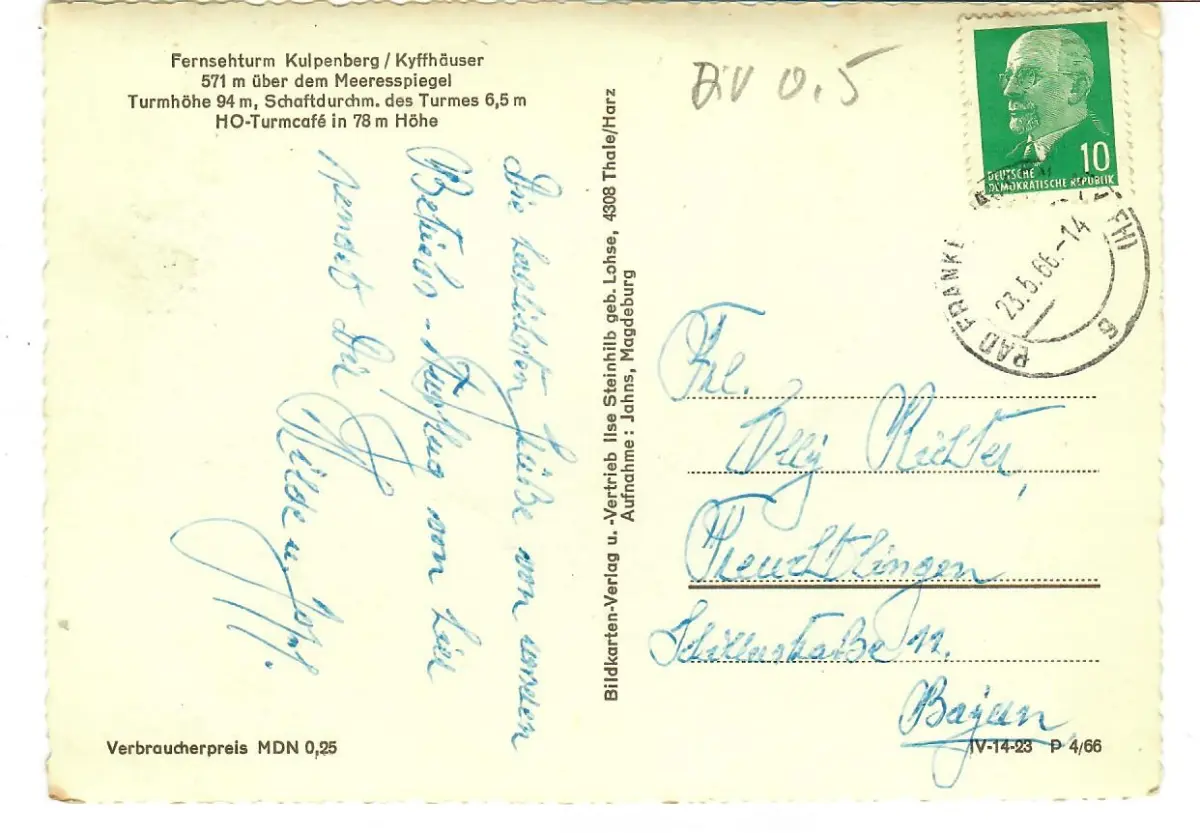 Fernsehturm Kulpenberg / Kyffhäuser
571 m über dem Meeresspiegel
Turmhöhe 94 m, Schaftdurchm. des Turmes 6,5 m
HO-Turmcafé in 78 m Höhe
Die herzlichsten Grüße von unserem
Betriebs-Ausflug von hier
sendet Dir
Hilde u.
Verbraucherpreis MDN 0,25
Bildkarten-Verlag u. -Vertrieb Ilse Steinhilb geb. Lohse, 4308 Thale/Harz
Aufnahme: Jahns, Magdeburg
0.5
10
DEUTSCHE
DEMOKRATISCHE REPUBLIK
BAD FRANKE
23.5.66.-14
6
Frl.
Olly Richter,
Treuchtlingen
Schillerstraße 11.
Bayern
IV-14-23 P 4/66